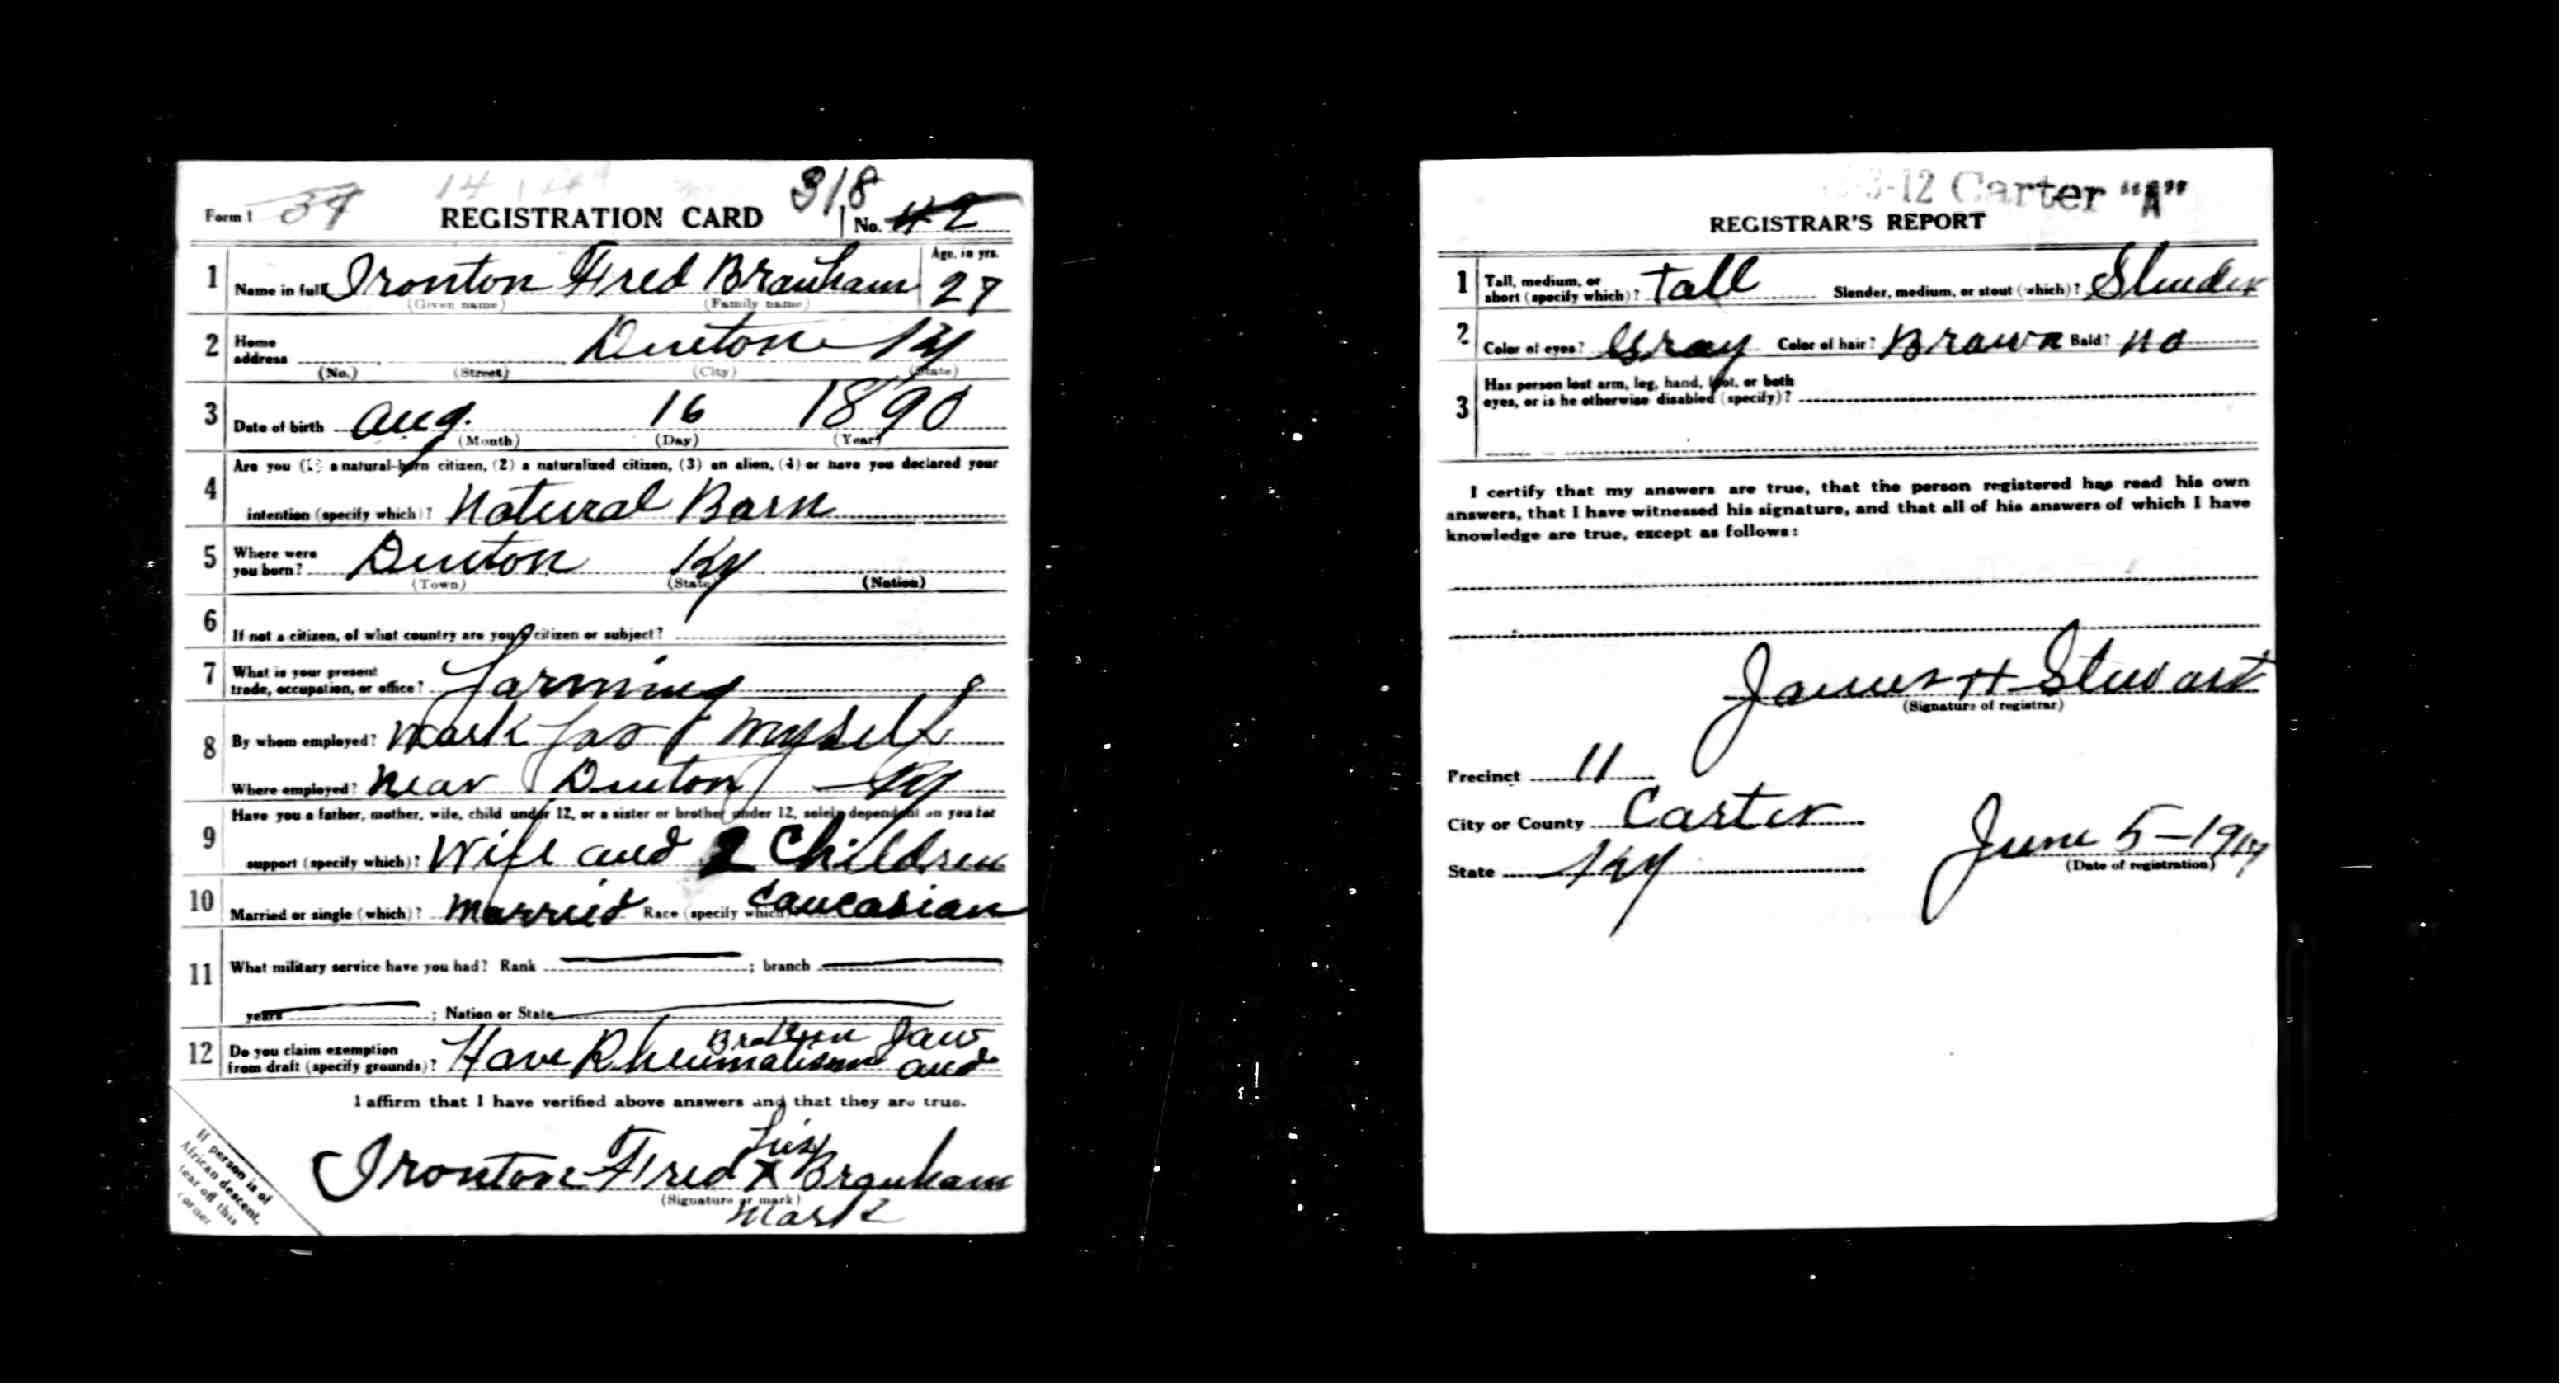 318
Form 1 REGISTRATION CARD No. 42
1 Name in full Ironton Fred Branham Age, in yrs. 27
(Given name) (Family name)
2 Home address Denton Ky
(No.) (Street) (City) (State)
3 Date of birth Aug. 16 1890
(Month) (Day) (Year)
4 Are you (1) a natural-born citizen, (2) a naturalized citizen, (3) an alien, (4) or have you declared your
intention (specify which)? Natural Born
5 Where were you born? Denton Ky
(Town) (State) (Nation)
6 If not a citizen, of what country are you a citizen or subject?
7 What is your present trade, occupation, or office? Farming
8 By whom employed? Work for myself
Where employed? Near Denton Ky
9 Have you a father, mother, wife, child under 12, or a sister or brother under 12, solely dependent on you for
support (specify which)? Wife and 2 Children
10 Married or single (which)? Married Race (specify which)? Caucasian
11 What military service have you had? Rank ; branch
years ; Nation or State
Broken Jaw
12 Do you claim exemption from draft (specify grounds)? Have Rheumatism and
I affirm that I have verified above answers and that they are true.
his
Ironton Fred X Branham
(Signature or mark)
mark
If person is of
African descent,
tear off this
corner
-3-12 Carter "A"
REGISTRAR'S REPORT
1 Tall, medium, or short (specify which)? Tall Slender, medium, or stout (which)? Slender
2 Color of eyes? Gray Color of hair? Brown Bald? No
3 Has person lost arm, leg, hand, foot, or both
eyes, or is he otherwise disabled (specify)?
I certify that my answers are true, that the person registered has read his own
answers, that I have witnessed his signature, and that all of his answers of which I have
knowledge are true, except as follows:
James H Stewart
(Signature of registrar)
Precinct 11
City or County Carter
State Ky
June 5-1917
(Date of registration)